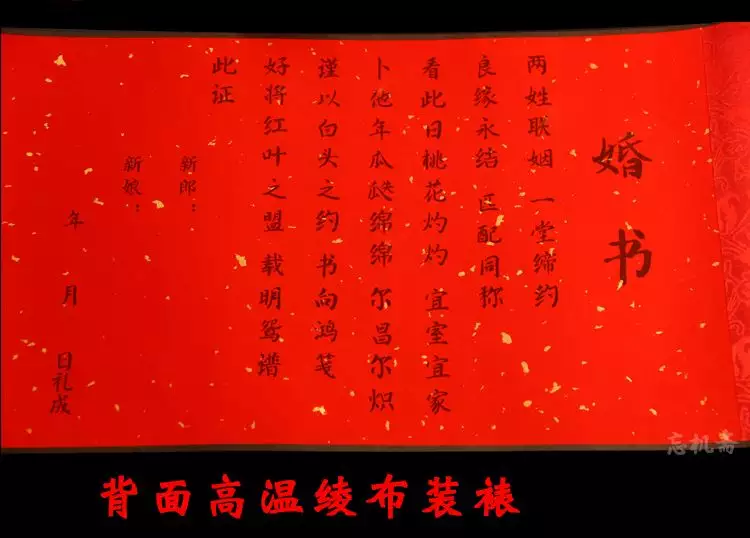 婚书
两姓联姻 一堂缔约
良缘永结 匹配同称
看此日桃花灼灼 宜室宜家
卜他年瓜瓞绵绵 尔昌尔炽
谨以白头之约 书向鸿笺
好将红叶之盟 载明鸳谱
此证
新郎：
新娘：
年 月 日礼成
忘机斋
背面高温绫布装裱